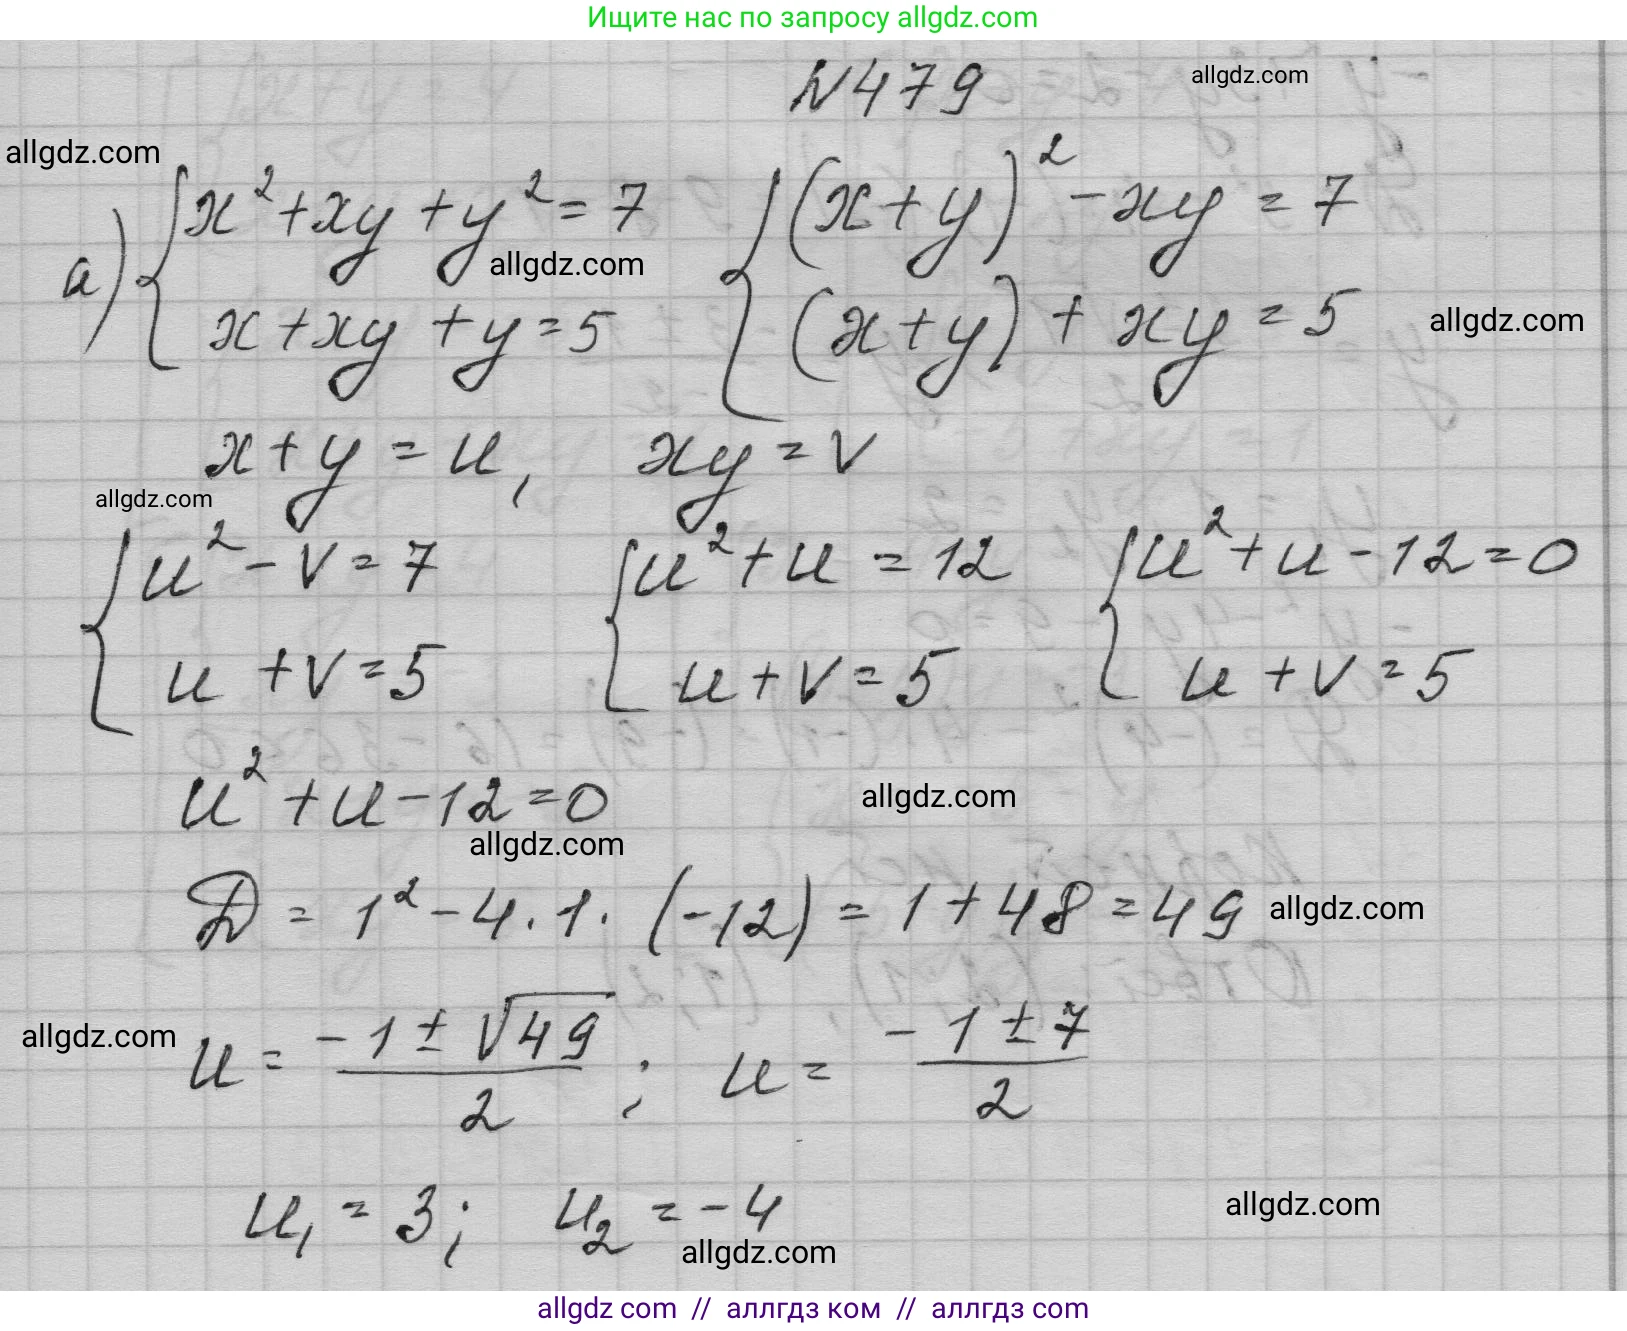 Ищите нас по запросу allgdz.com
N479
allgdz.com
allgdz.com
а) { x² + xy + y² = 7 { (x + y)² - xy = 7
allgdz.com
x + xy + y = 5 (x + y) + xy = 5
allgdz.com
x + y = u, xy = v
allgdz.com
{ u² - v = 7 { u² + u = 12 { u² + u - 12 = 0
u + v = 5 u + v = 5 u + v = 5
u² + u - 12 = 0
allgdz.com
allgdz.com
D = 1² - 4 · 1 · (-12) = 1 + 48 = 49
allgdz.com
allgdz.com
u = (-1 ± √49)/2 ; u = (-1 ± 7)/2
u₁ = 3; u₂ = -4
allgdz.com
allgdz.com
allgdz com // аллгдз ком // аллгдз com